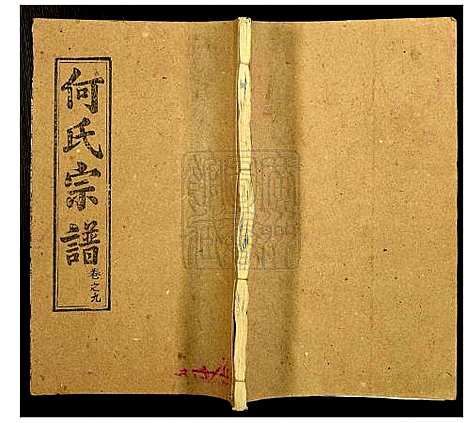 何氏宗譜
卷之九